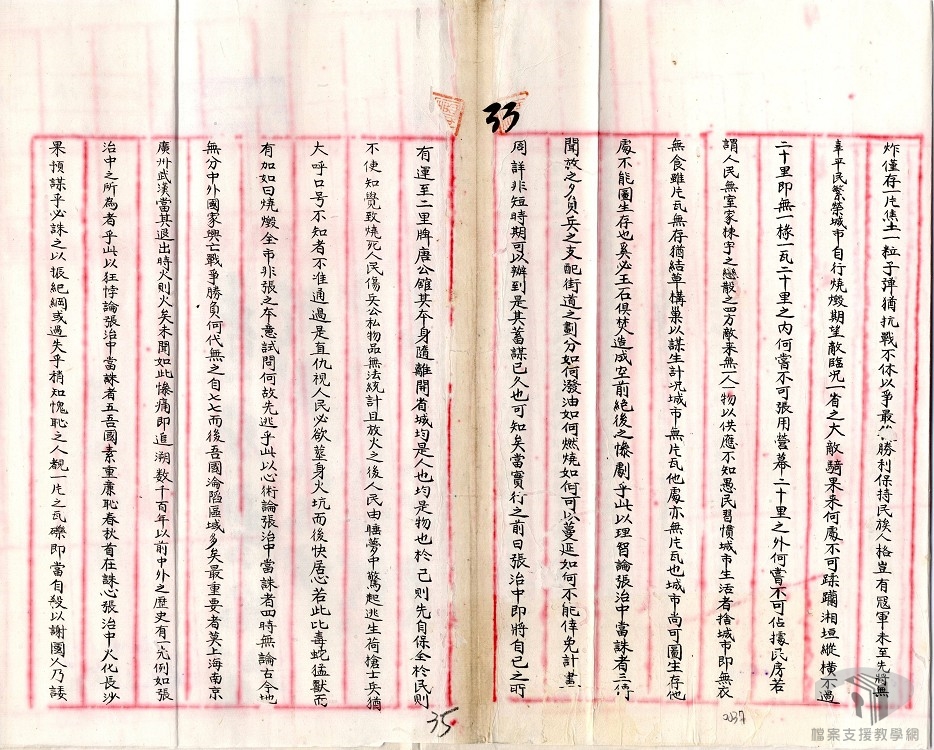 炸僅存一片焦土一粒子彈猶抗戰不休以爭最後勝利保持民族人格豈有冦軍未至先將無
辜平民繁榮城市自行燒燬期望敵臨況一省之大敵騎果來何處不可蹂躪湘垣縱橫不過
二十里即無一椽一瓦二十里之內何嘗不可張用營幕二十里之外何嘗不可佔據民房若
謂人民無室家棟宇之戀散之四方敵來無一人一物以供應不知愚民習慣城市生活者捨城市即無衣
無食雖片瓦無存猶結草構巢以謀生計況城市無片瓦他處亦無片瓦也城市尚可圖生存他
處不能圖生存也奚必玉石俱焚人造成空前絕後之慘劇乎此以理智論張治中當誅者三何
聞放之多負兵之支配街道之劃分如何潑油如何燃燒如何可以蔓延如何不能倖免計畫
周詳非短時期可以辦到是其蓄謀已久也可知矣當實行之前日張治中即將自己之所
有運至二里牌唐公館其本身隨離開省城均是人也均是物也於己則先自保全於民則
不使知覺致燒死人民傷兵公私物品無法統計且放火之後人民由睡夢中驚起逃生荷槍士兵猶
大呼口號不知者不准通過是直仇視人民必欲葬身火坑而後快居心若此比毒蛇猛獸而
有加如曰燒燬全市非張之本意試問何故先逃乎此以心術論張治中當誅者四時無論古今地
無分中外國家興亡戰爭勝負何代無之自七七而後吾國淪陷區域多矣最重要者莫上海南京
廣州武漢當其退出時火則火矣未聞如此慘痛即追溯數千百年以前中外之歷史有一先例如張
治中之所為者乎此以狂悖論張治中當誅者五吾國素重廉恥春秋首在誅心張治中火化長沙
果預謀乎必誅之以振紀綱或過失乎稍知愧恥之人覩一片之瓦礫即當自殺以謝國人乃諉
33
35
0037
檔案支援教學網